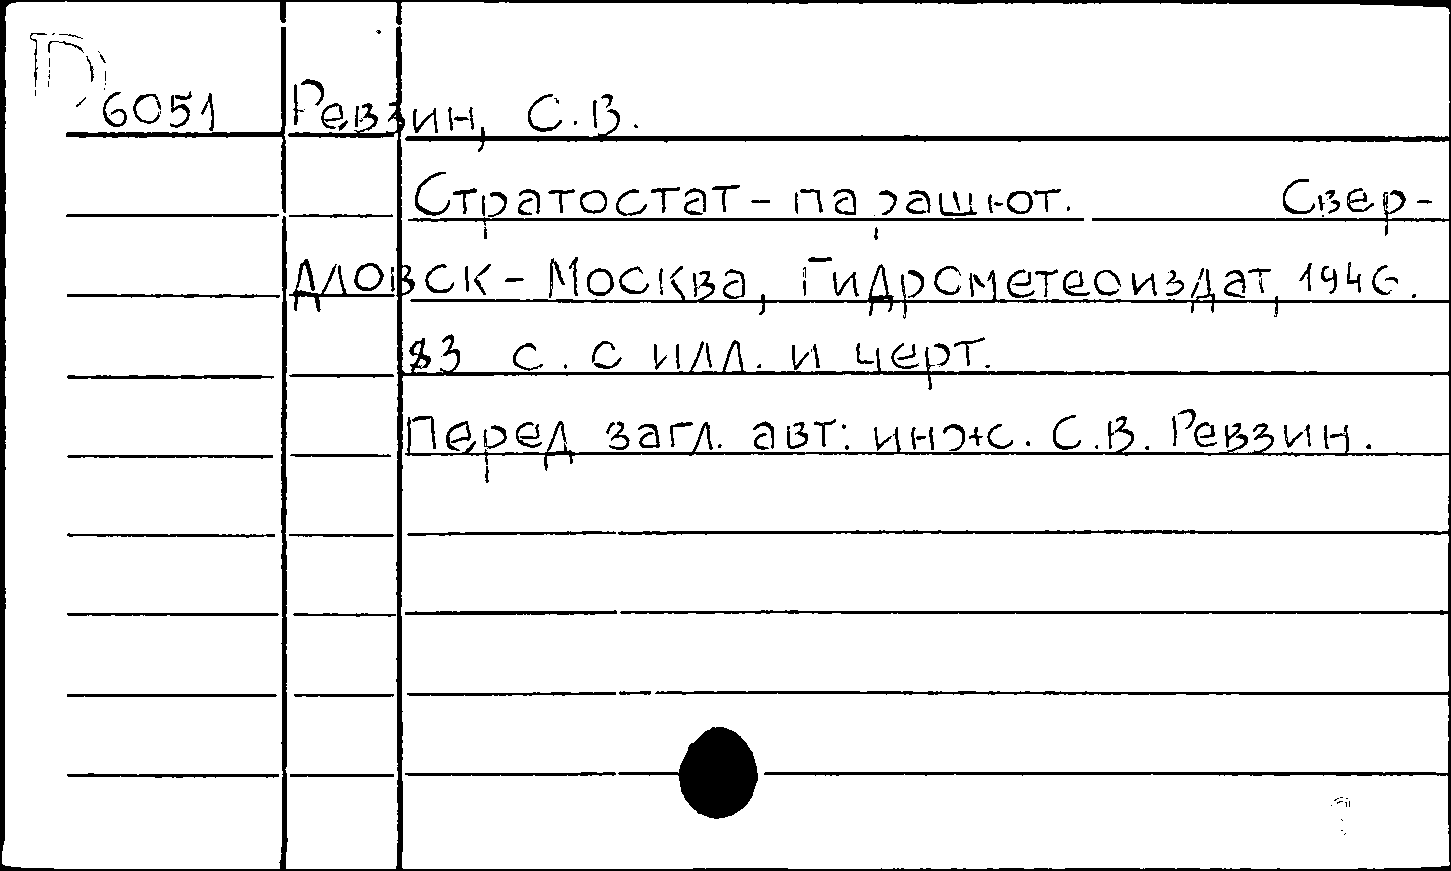 D 6051 Ревзин, С.В.
Стратостат - парашют. Свер-
дловск - Москва, Гидрометеоиздат, 1946.
83 с. с илл. и черт.
Перед загл. авт: инж. С.В. Ревзин.